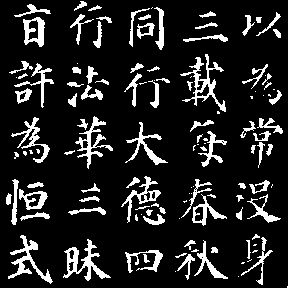 以為常没身
三載每春秋
同行大德四
行法華三昧
旨許為恒式